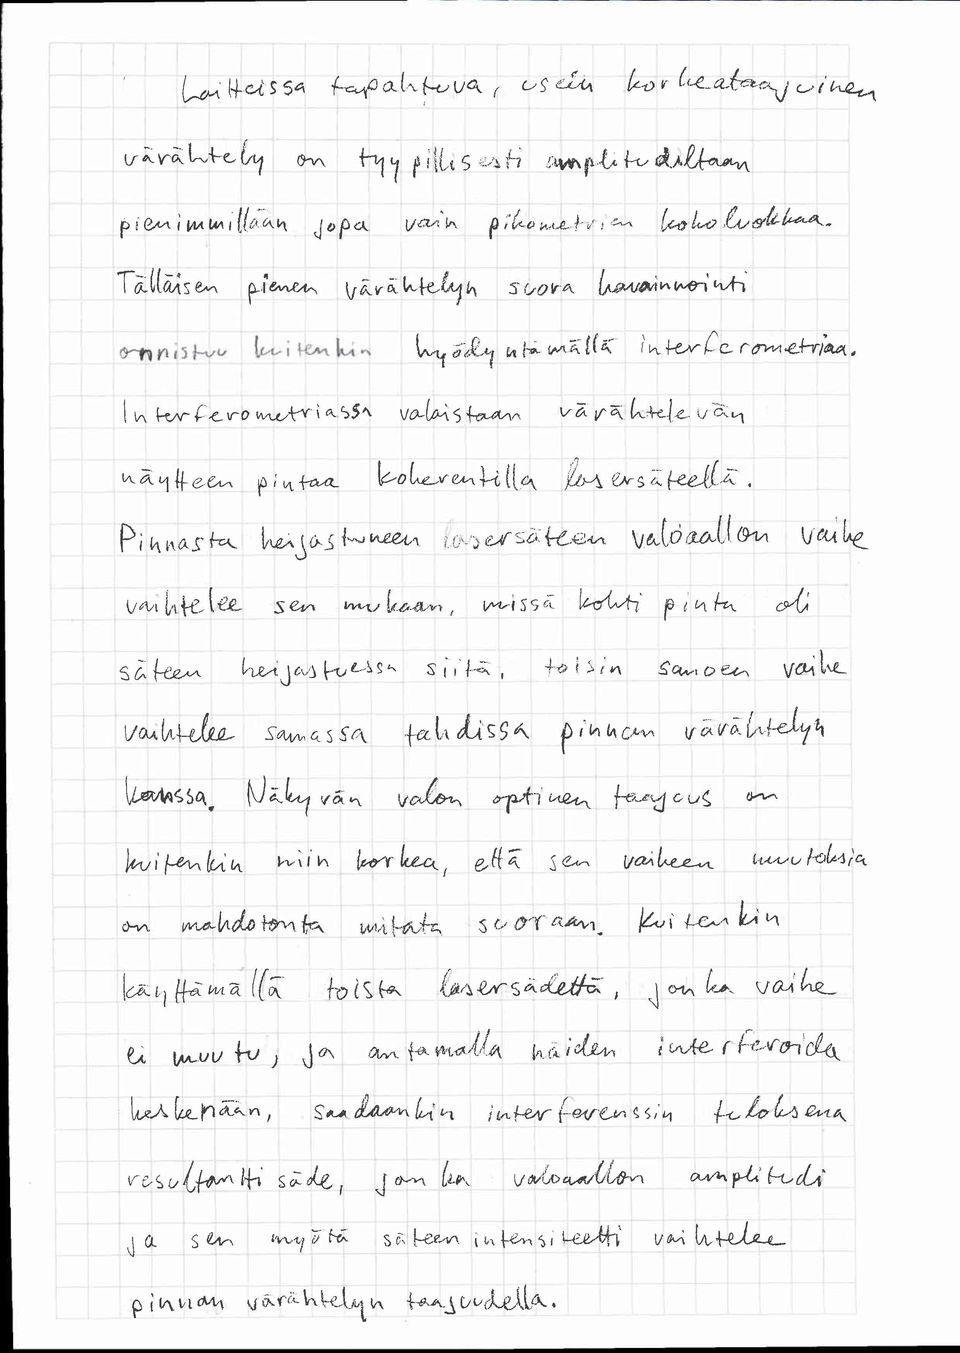 Laitteissa tapahtuva, usein korkeataajuinen
värähtely on tyypillisesti amplitudiltaan
pienimmillään jopa vain pikometrien kokoluokkaa.
Tälläisen pienen värähtelyn suora havainnointi
onnistuu kuitenkin hyödyntämällä interferometriaa.
Interferometriassa valaistaan värähtelevän
näytteen pintaa koherentilla lasersäteellä.
Pinnasta heijastuneen lasersäteen valoaallon vaihe
vaihtelee sen mukaan, missä kohti pinta oli
säteen heijastuessa siitä, toisin sanoen vaihe
vaihtelee samassa tahdissa pinnan värähtelyn
kanssa. Näkyvän valon optinen taajuus on
kuitenkin niin korkea, että sen vaiheen muutoksia
on mahdotonta mitata suoraan. Kuitenkin
käyttämällä toista lasersädettä, jonka vaihe
ei muutu, ja antamalla näiden interferoida
keskenään, saadaankin interferenssin tuloksena
resultanttisäde, jonka valoaallon amplitudi
ja sen myötä säteen intensiteetti vaihtelee
pinnan värähtelyn taajuudella.